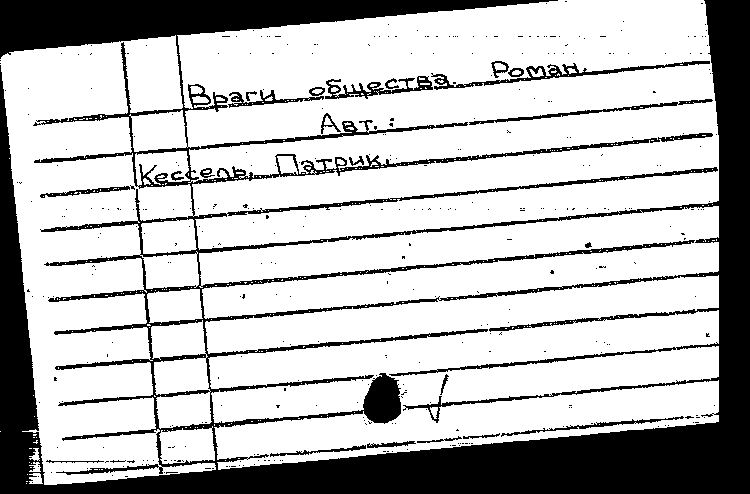 Враги общества. Роман.
Авт.:
Кессель, Патрик.